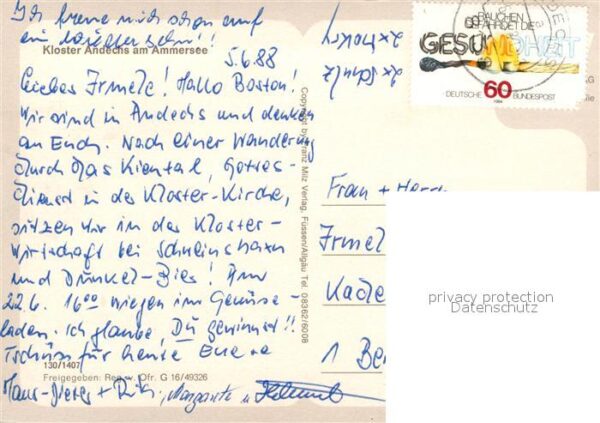 Ich freue mich schon auf
ein Wiedersehn!!
Kloster Andechs am Ammersee
5.6.88
Liebes Irmele! Hallo Boston!
Wir sind in Andechs und denken
an Euch. Nach einer Wanderung
durch das Kiental, Gottes-
dienst in der Kloster-Kirche,
sitzen wir in der Kloster-
wirtschaft bei Schweinshaxn
und Dunkel-Bier! Am
22.6. 16⁰⁰ wiegen im Gemüse-
laden. Ich glaube, Du gewinnst!!
Tschüss für heute Eure
130/1407
Freigegeben: Reg. v. Ofr. G 16/49326
Hans-Dieter + Margarete u. Helmut
Copyright by Franz Milz Verlag, Füssen/Allgäu Tel. 08362/6008
RAUCHEN
GEFÄHRDET DIE
GESUNDHEIT
DEUTSCHE BUNDESPOST
60
1984
Frau + Herrn
Irmel
Kade
1 Be
privacy protection
Datenschutz